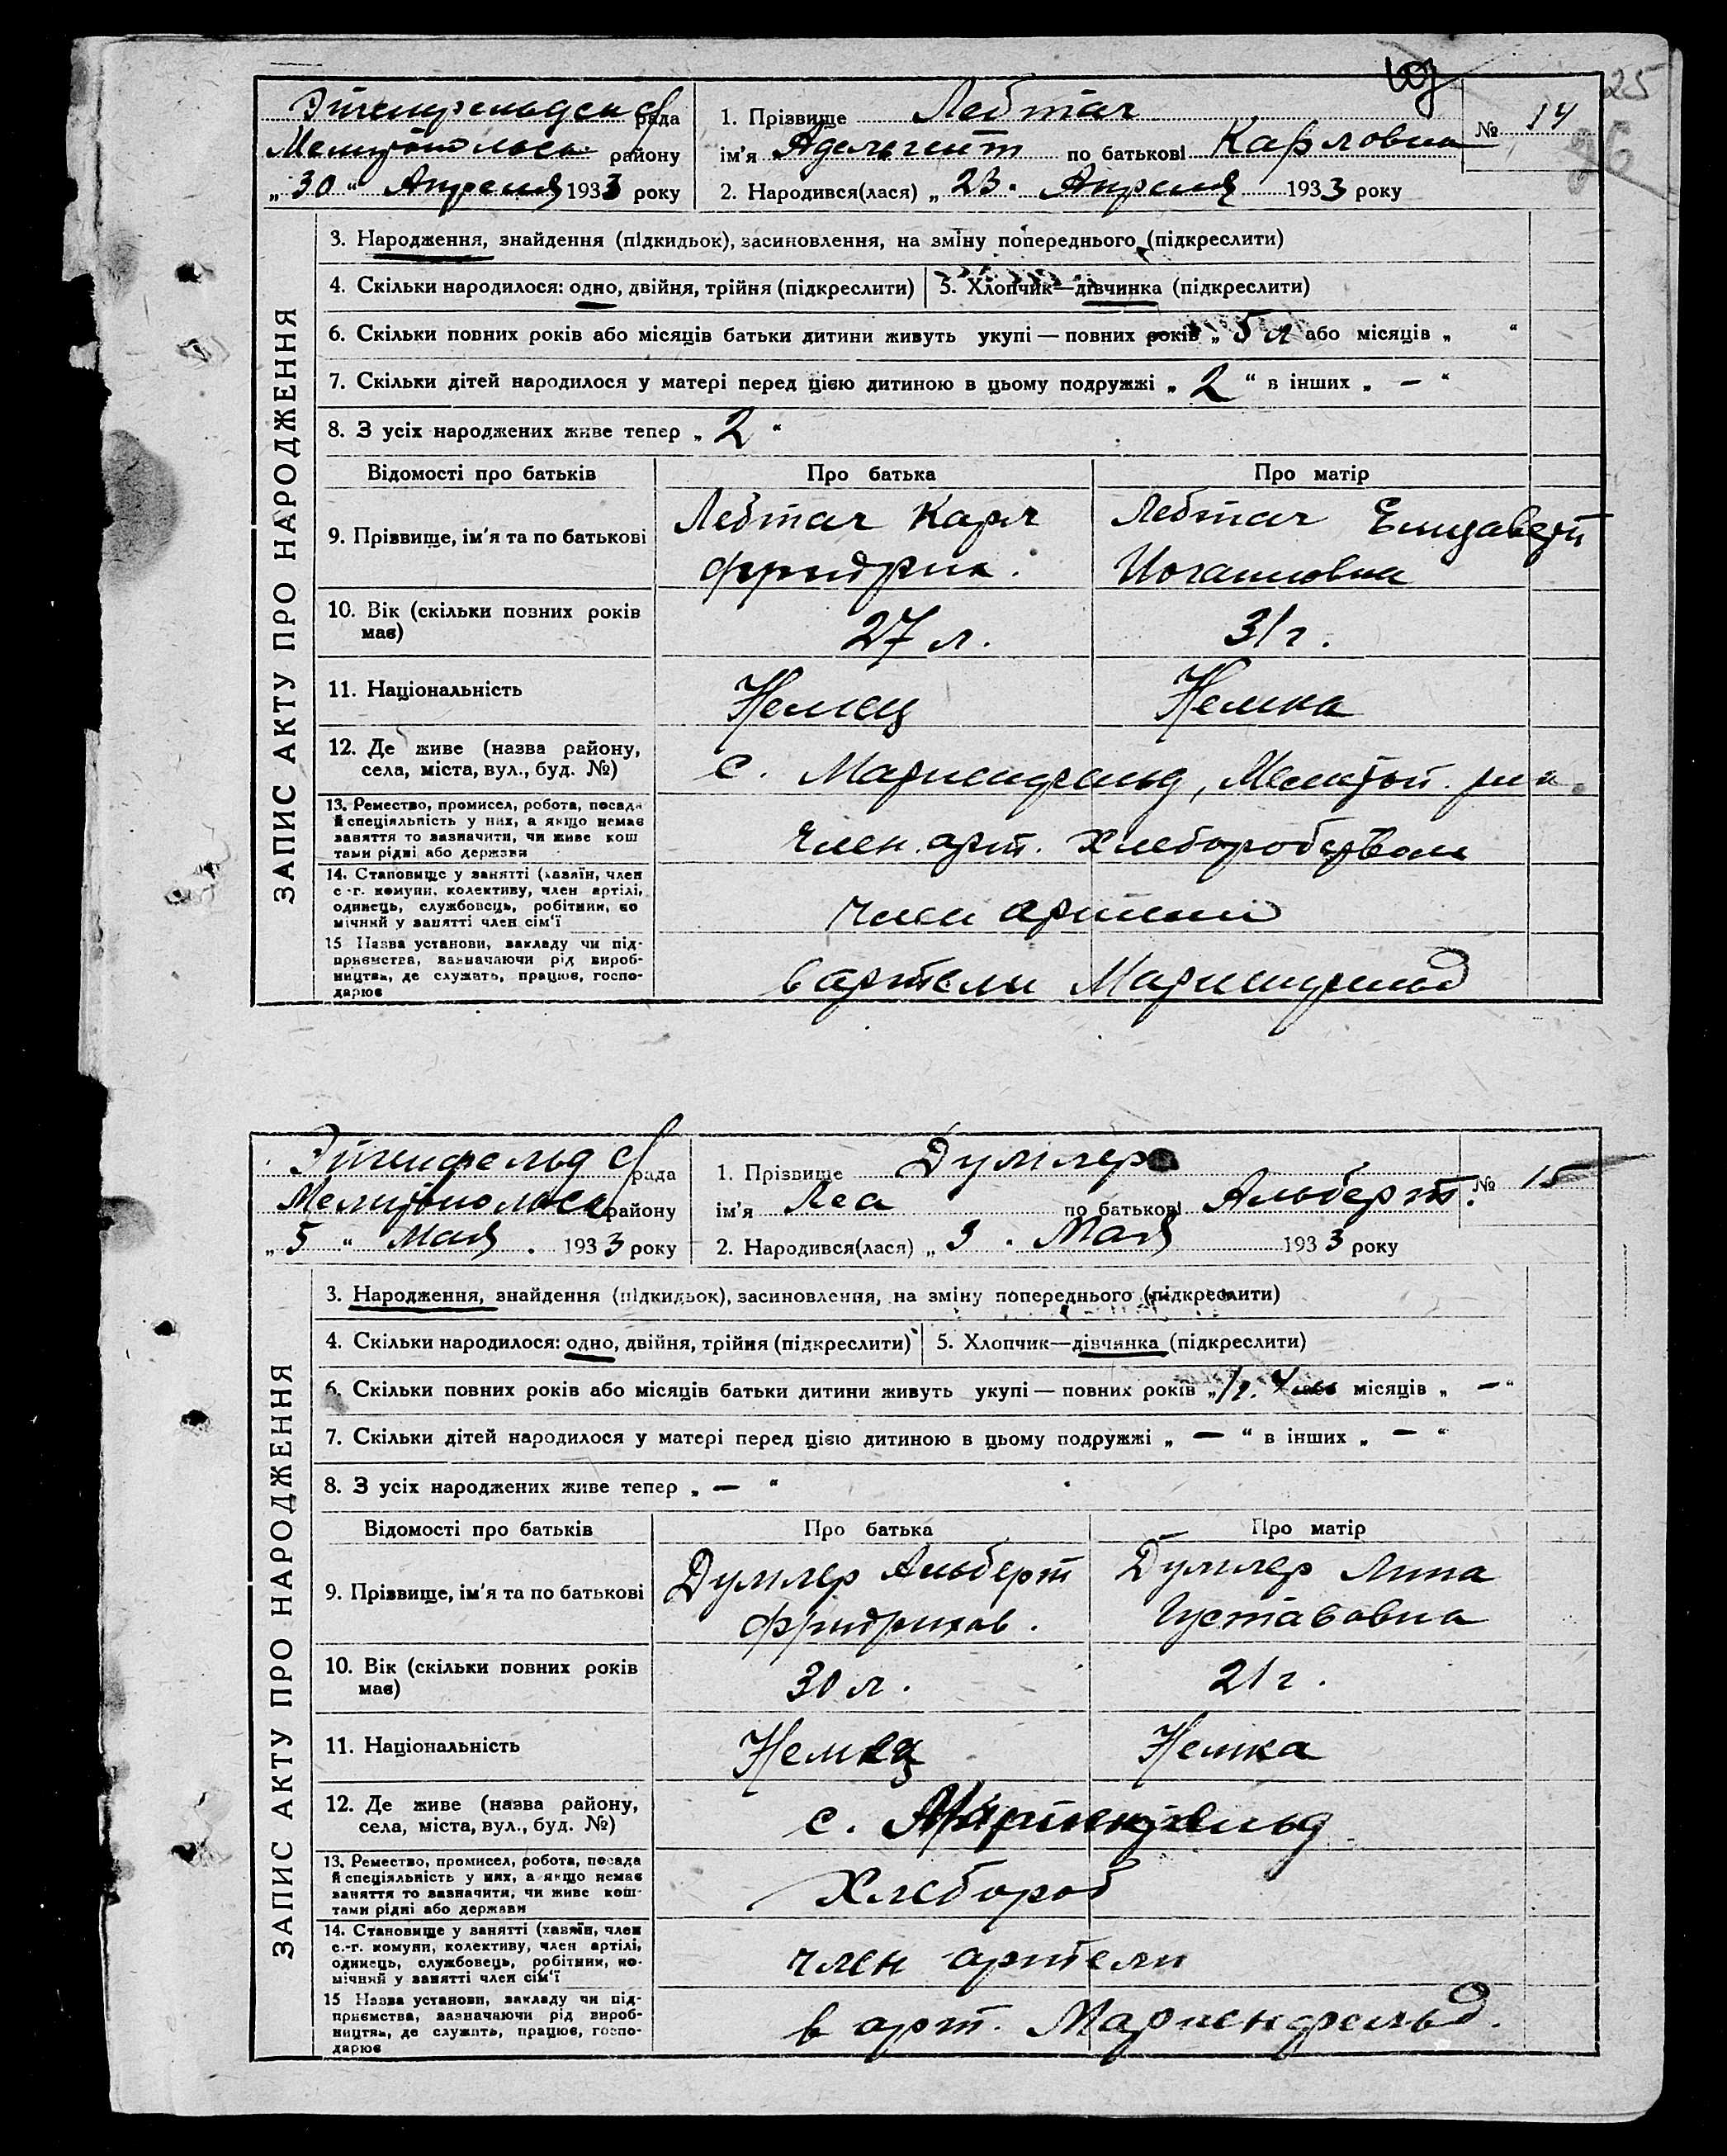 25
Этигенфельдск с/рада
Мелитопольск району
„30“ Апреля 1933 року
1. Прізвище Лебтаг
ім'я Адельгейт по батькові Карловна
№ 14
26
2. Народився(лася) „23. Апреля 1933 року
ЗАПИС АКТУ ПРО НАРОДЖЕННЯ
3. Народження, знайдення (підкидьок), засиновлення, на зміну попереднього (підкреслити)
4. Скільки народилося: одно, двійня, трійня (підкреслити) 5. Хлопчик—дівчинка (підкреслити)
6. Скільки повних років або місяців батьки дитини живуть укупі — повних років „ 5 л або місяців „ “
7. Скільки дітей народилося у матері перед цією дитиною в цьому подружжі „ 2 “ в інших „ — “
8. З усіх народжених живе тепер „ 2 “
Відомості про батьків Про батька Про матір
9. Прізвище, ім'я та по батькові
Лебтаг Карл
Фридрих.
Лебтаг Елизавет
Иогановна
10. Вік (скільки повних років
має)
27 л. 31 г.
11. Національність Немец Немка
12. Де живе (назва району,
села, міста, вул., буд. №)
с. Мариенфельд, Мелитоп. р-н.
13. Ремество, промисел, робота, посада
й спеціяльність у них, а якщо немає
заняття то зазначити, чи живе кош
тами рідні або держави
член. арт.
14. Становище у занятті (хазяїн, член
с.-г. комуни, колективу, член артілі,
одинець, службовець, робітник, по
мічний у занятті член сім'ї
член артели
15 Назва установи, закладу чи під-
приємства, зазначаючи рід вироб-
ництва, де служить, працює, госпо-
дарює
в артели Мариенфельд
Этигенфельд с/рада
Мелитопольск району
„5“ Мая. 1933 року
1. Прізвище Думлер
ім'я Леа по батькові Альберт.
№ 15
2. Народився(лася) „3. Мая 1933 року
ЗАПИС АКТУ ПРО НАРОДЖЕННЯ
3. Народження, знайдення (підкидьок), засиновлення, на зміну попереднього (підкреслити)
4. Скільки народилося: одно, двійня, трійня (підкреслити) 5. Хлопчик—дівчинка (підкреслити)
6. Скільки повних років або місяців батьки дитини живуть укупі — повних років „ 1 г. 4 м або місяців „ — “
7. Скільки дітей народилося у матері перед цією дитиною в цьому подружжі „ — “ в інших „ — “
8. З усіх народжених живе тепер „ — “
Відомості про батьків Про батька Про матір
9. Прізвище, ім'я та по батькові
Думлер Альберт
Фридрихов.
Думлер Лина
Густавовна
10. Вік (скільки повних років
має)
30 л. 21 г.
11. Національність Немец Немка
12. Де живе (назва району,
села, міста, вул., буд. №)
с. Мариенфельд
13. Ремество, промисел, робота, посада
й спеціяльність у них, а якщо немає
заняття то зазначити, чи живе кош-
тами рідні або держави
Хлебороб
14. Становище у занятті (хазяїн, член
с.-г. комуни, колективу, член артілі,
одинець, службовець, робітник, по-
мічний у занятті член сім'ї
член артели
15 Назва установи, закладу чи під-
приємства, зазначаючи рід вироб-
ництва, де служить, працює, госпо-
дарює
в арт. Мариенфельд.